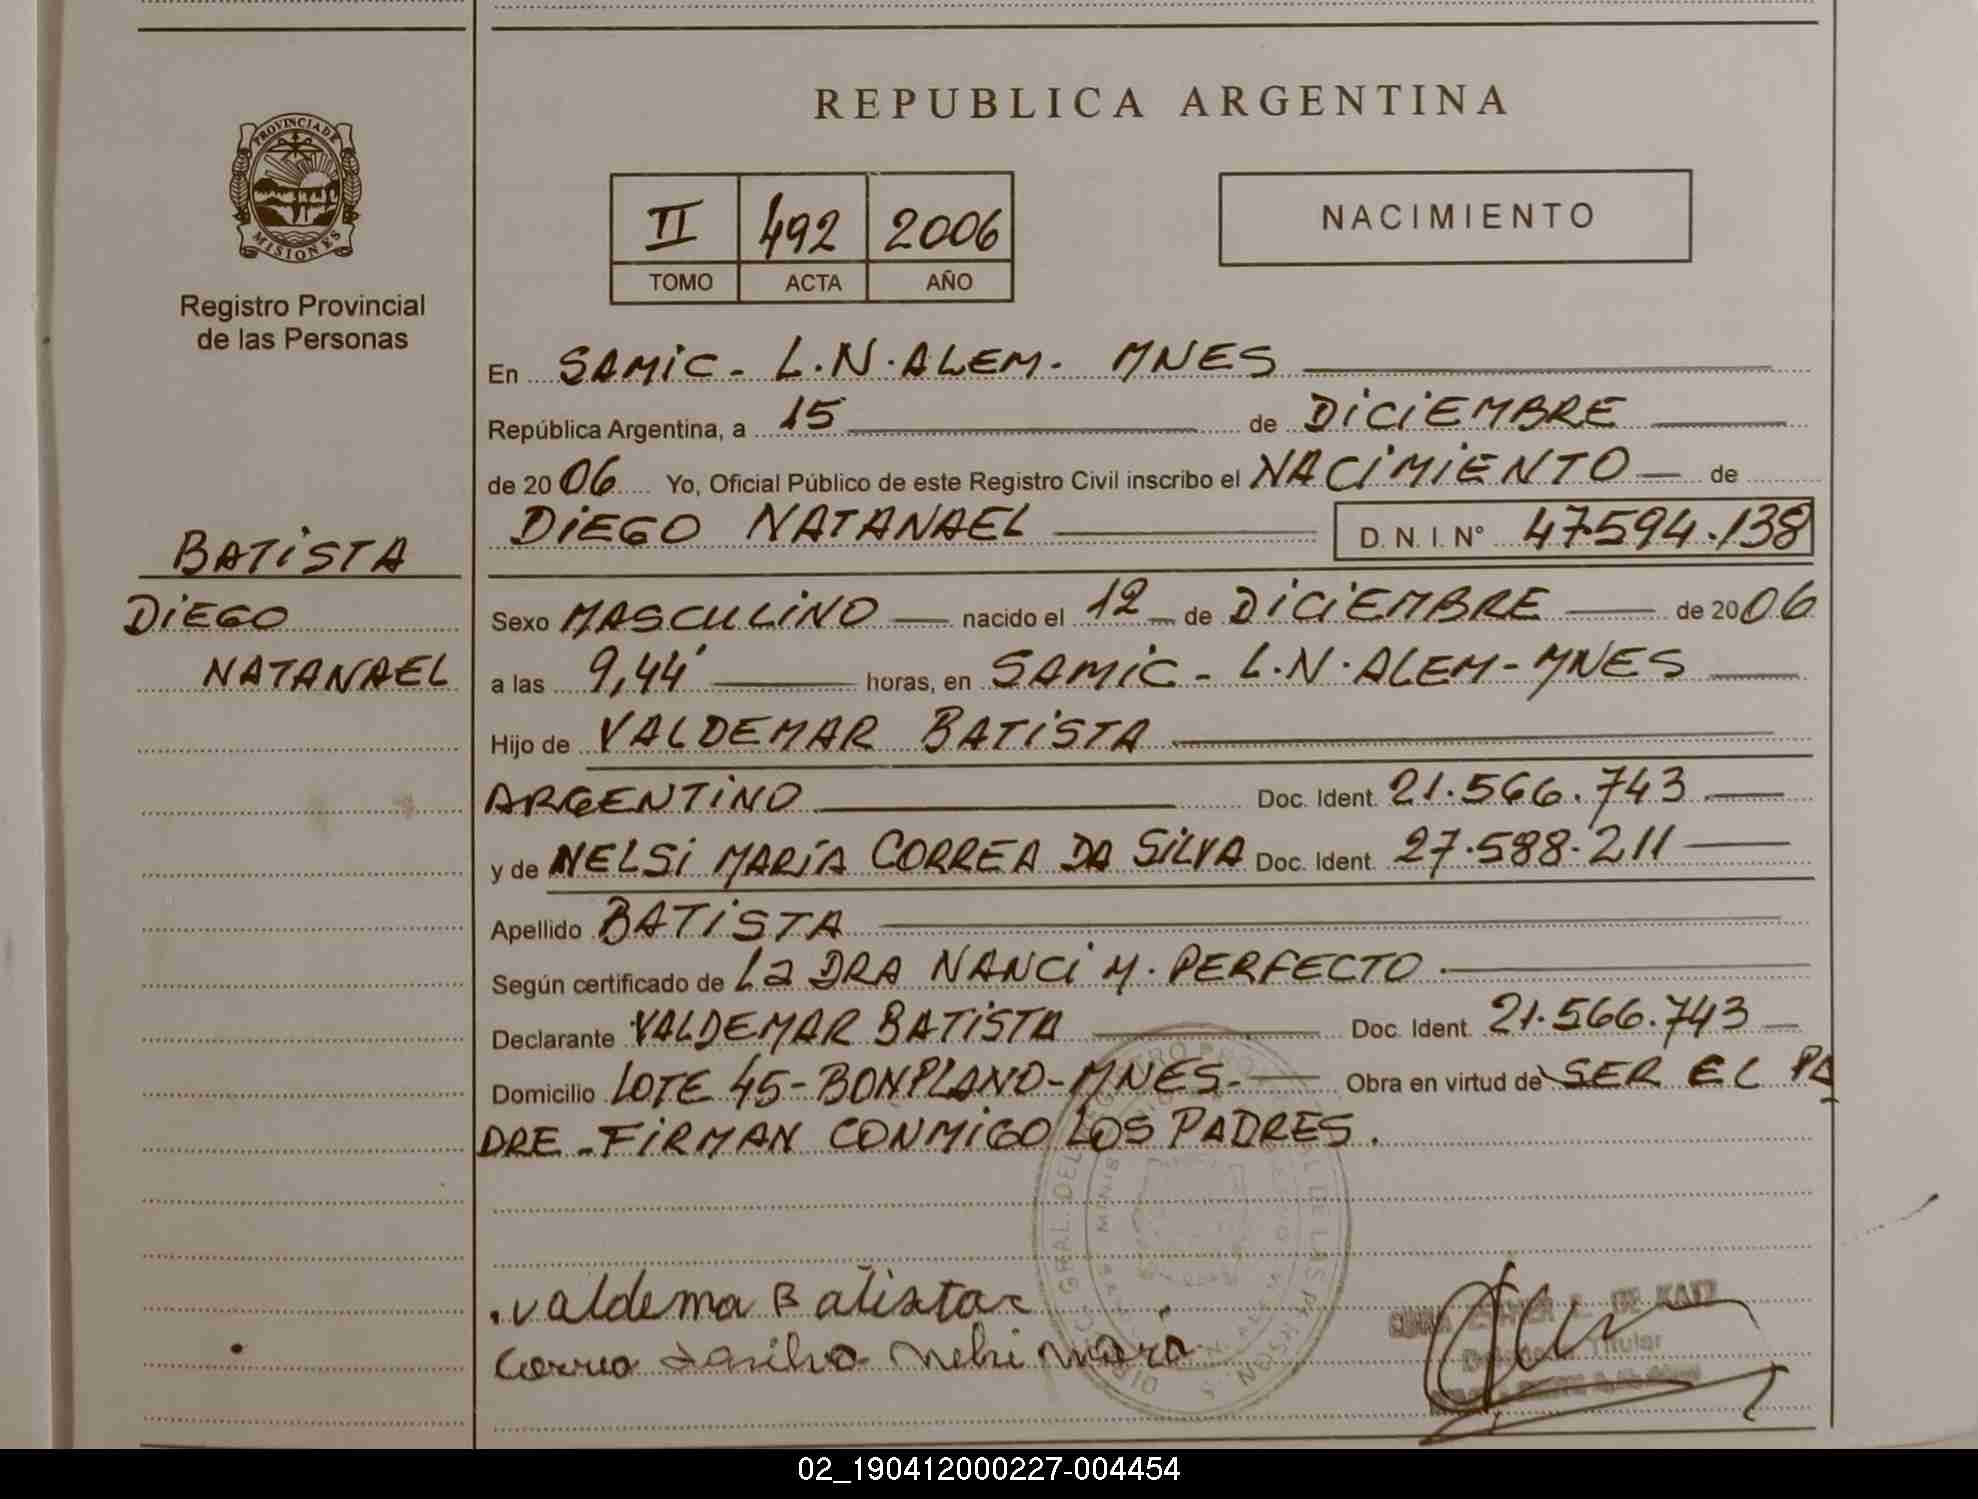 PROVINCIA DE
MISIONES
Registro Provincial
de las Personas
BATISTA
DIEGO
NATANAEL
REPUBLICA ARGENTINA
II 492 2006
TOMO ACTA AÑO
NACIMIENTO
En SAMIC - L.N. ALEM - MNES
República Argentina, a 15 de DICIEMBRE
de 20 06 Yo, Oficial Público de este Registro Civil inscribo el NACIMIENTO de
DIEGO NATANAEL D. N. I. N° 47.594.138
Sexo MASCULINO nacido el 12 de DICIEMBRE de 20 06
a las 9,44' horas, en SAMIC - L.N. ALEM - MNES
Hijo de VALDEMAR BATISTA
ARGENTINO Doc. Ident. 21.566.743
y de NELSI MARÍA CORREA DA SILVA Doc. Ident. 27.588.211
Apellido BATISTA
Según certificado de La DRA NANCI M. PERFECTO
Declarante VALDEMAR BATISTA Doc. Ident. 21.566.743
Domicilio LOTE 45 - BONPLAND - MNES - Obra en virtud de SER EL PA
DRE - FIRMAN CONMIGO LOS PADRES.
valdema Batista
Correa Dasilva Nelsi Maria
DE KATZ
Titular
02_190412000227-004454